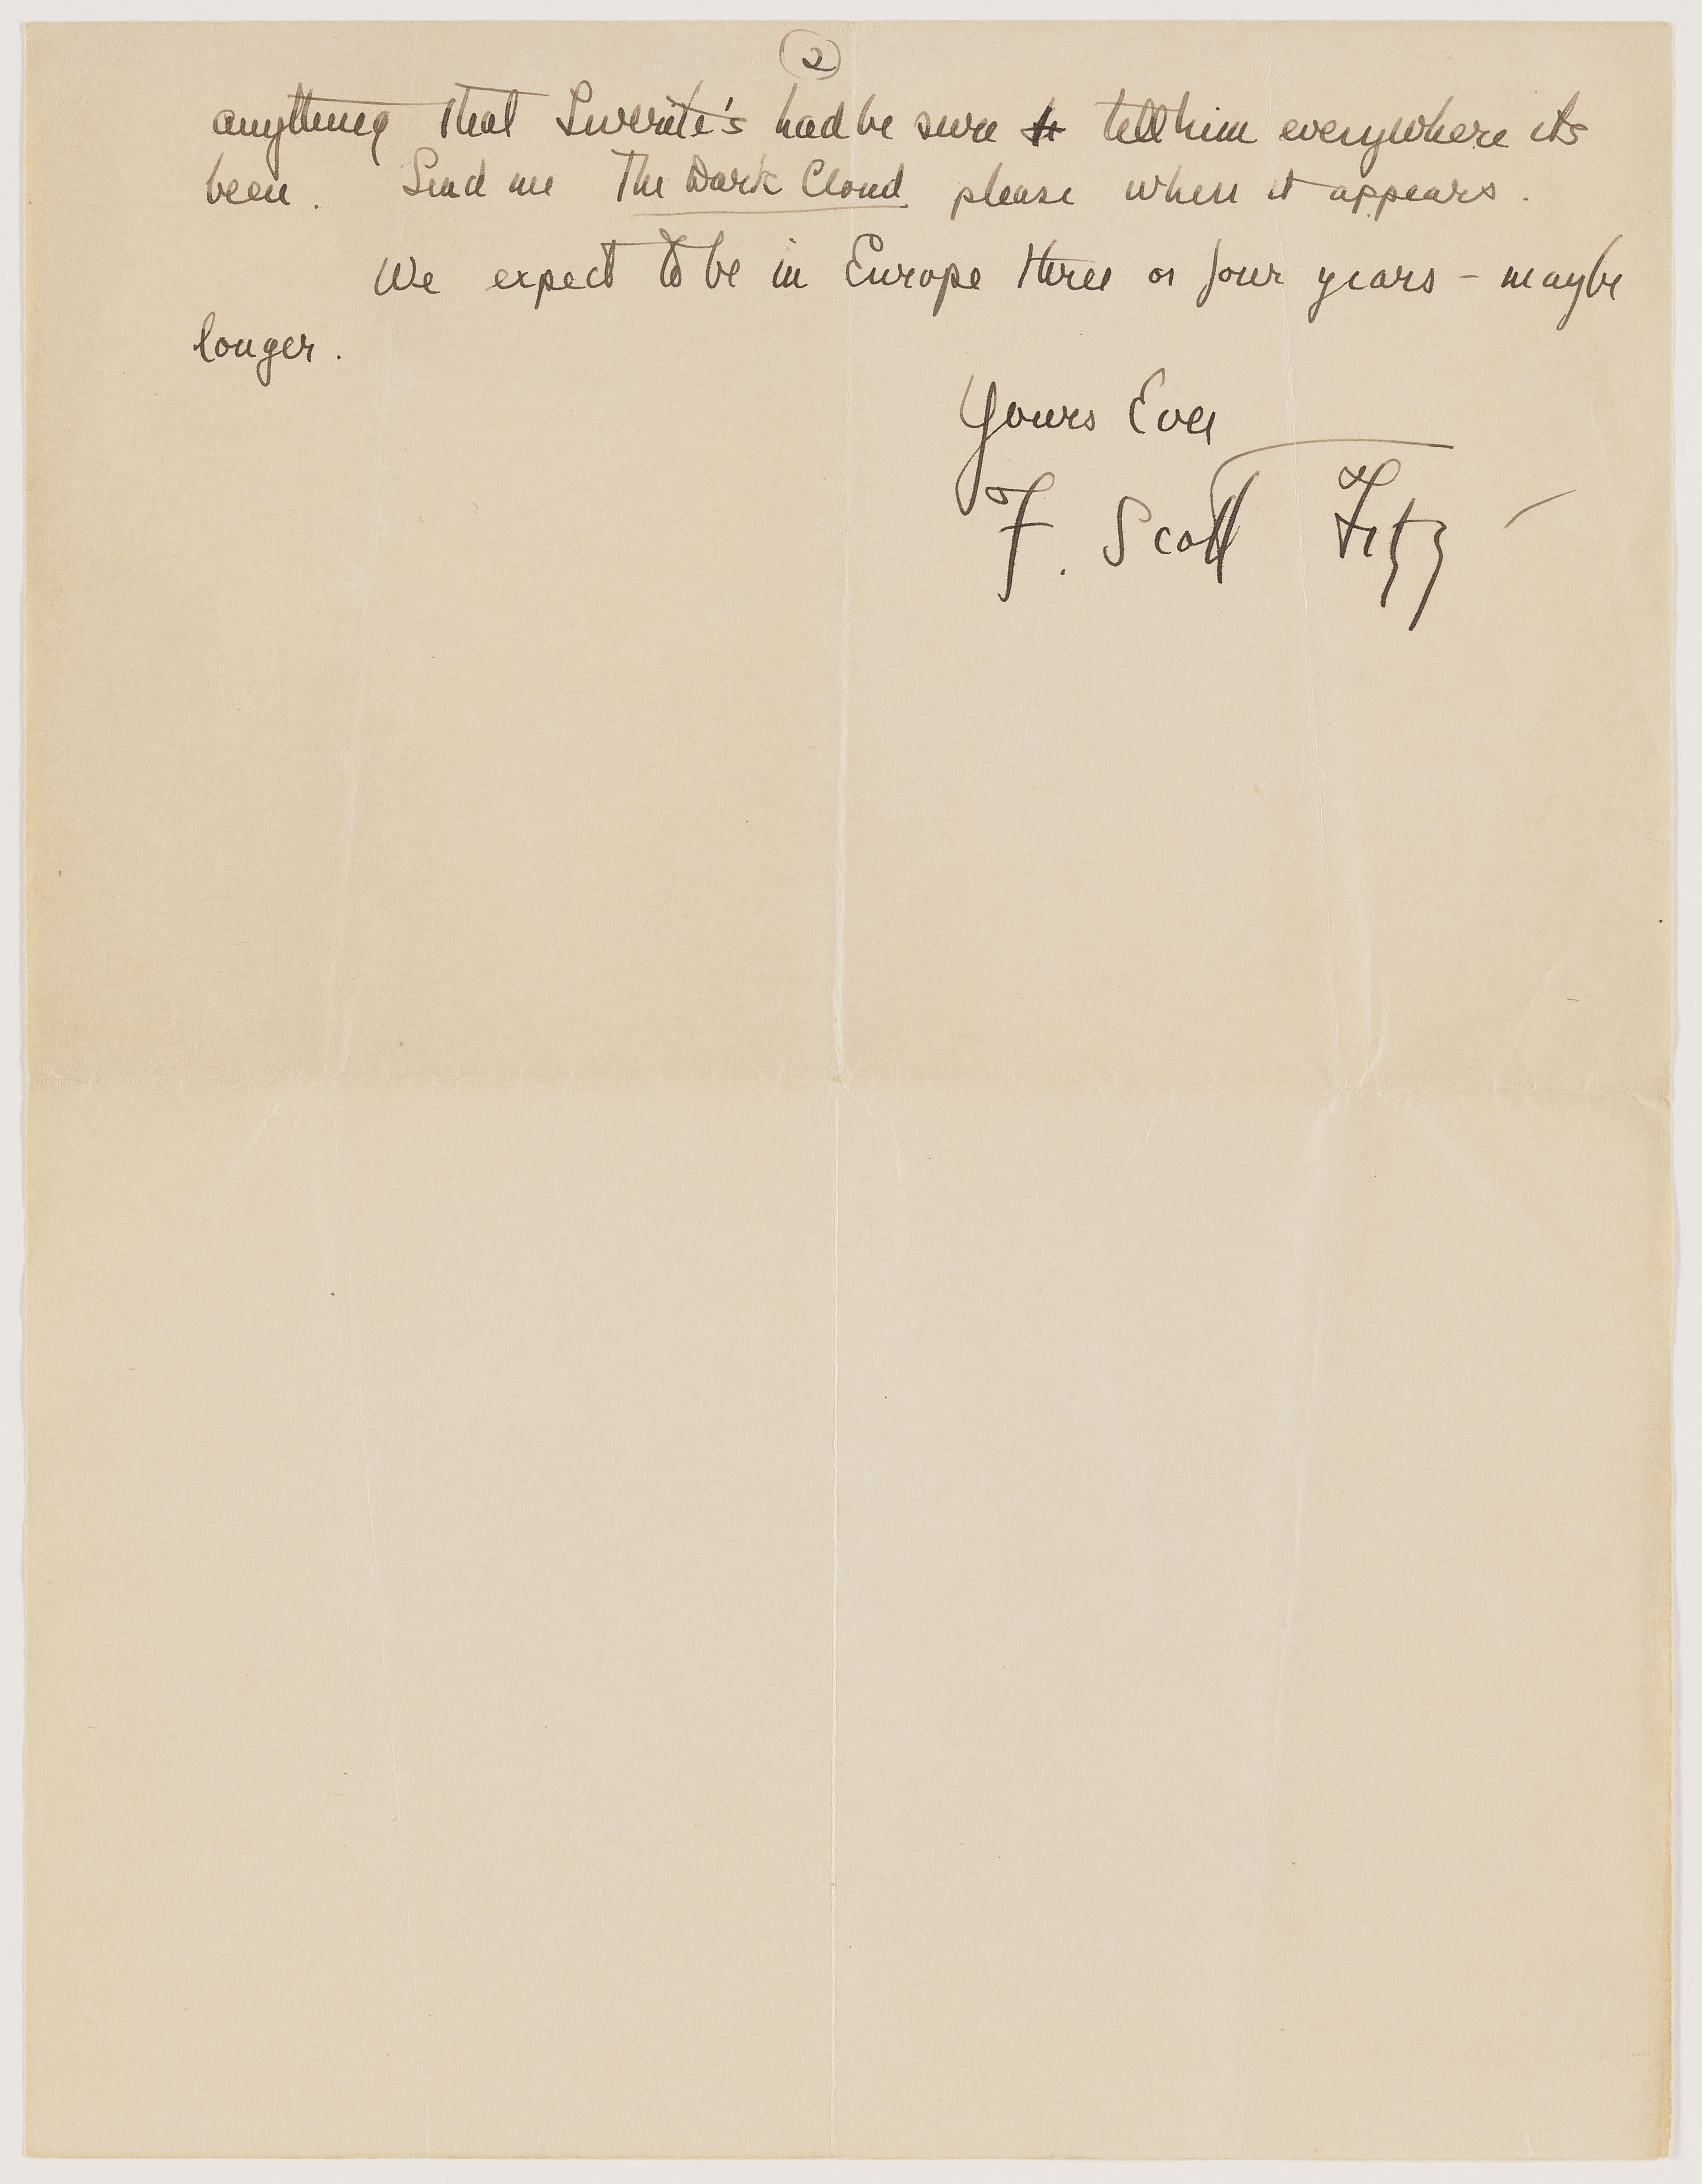 2
anything that Liverite's had be sure to tell him everywhere its
been. Send me The Dark Cloud please when it appears.
We expect to be in Europe three or four years - maybe
longer.
Yours Ever
F. Scott Fitz—